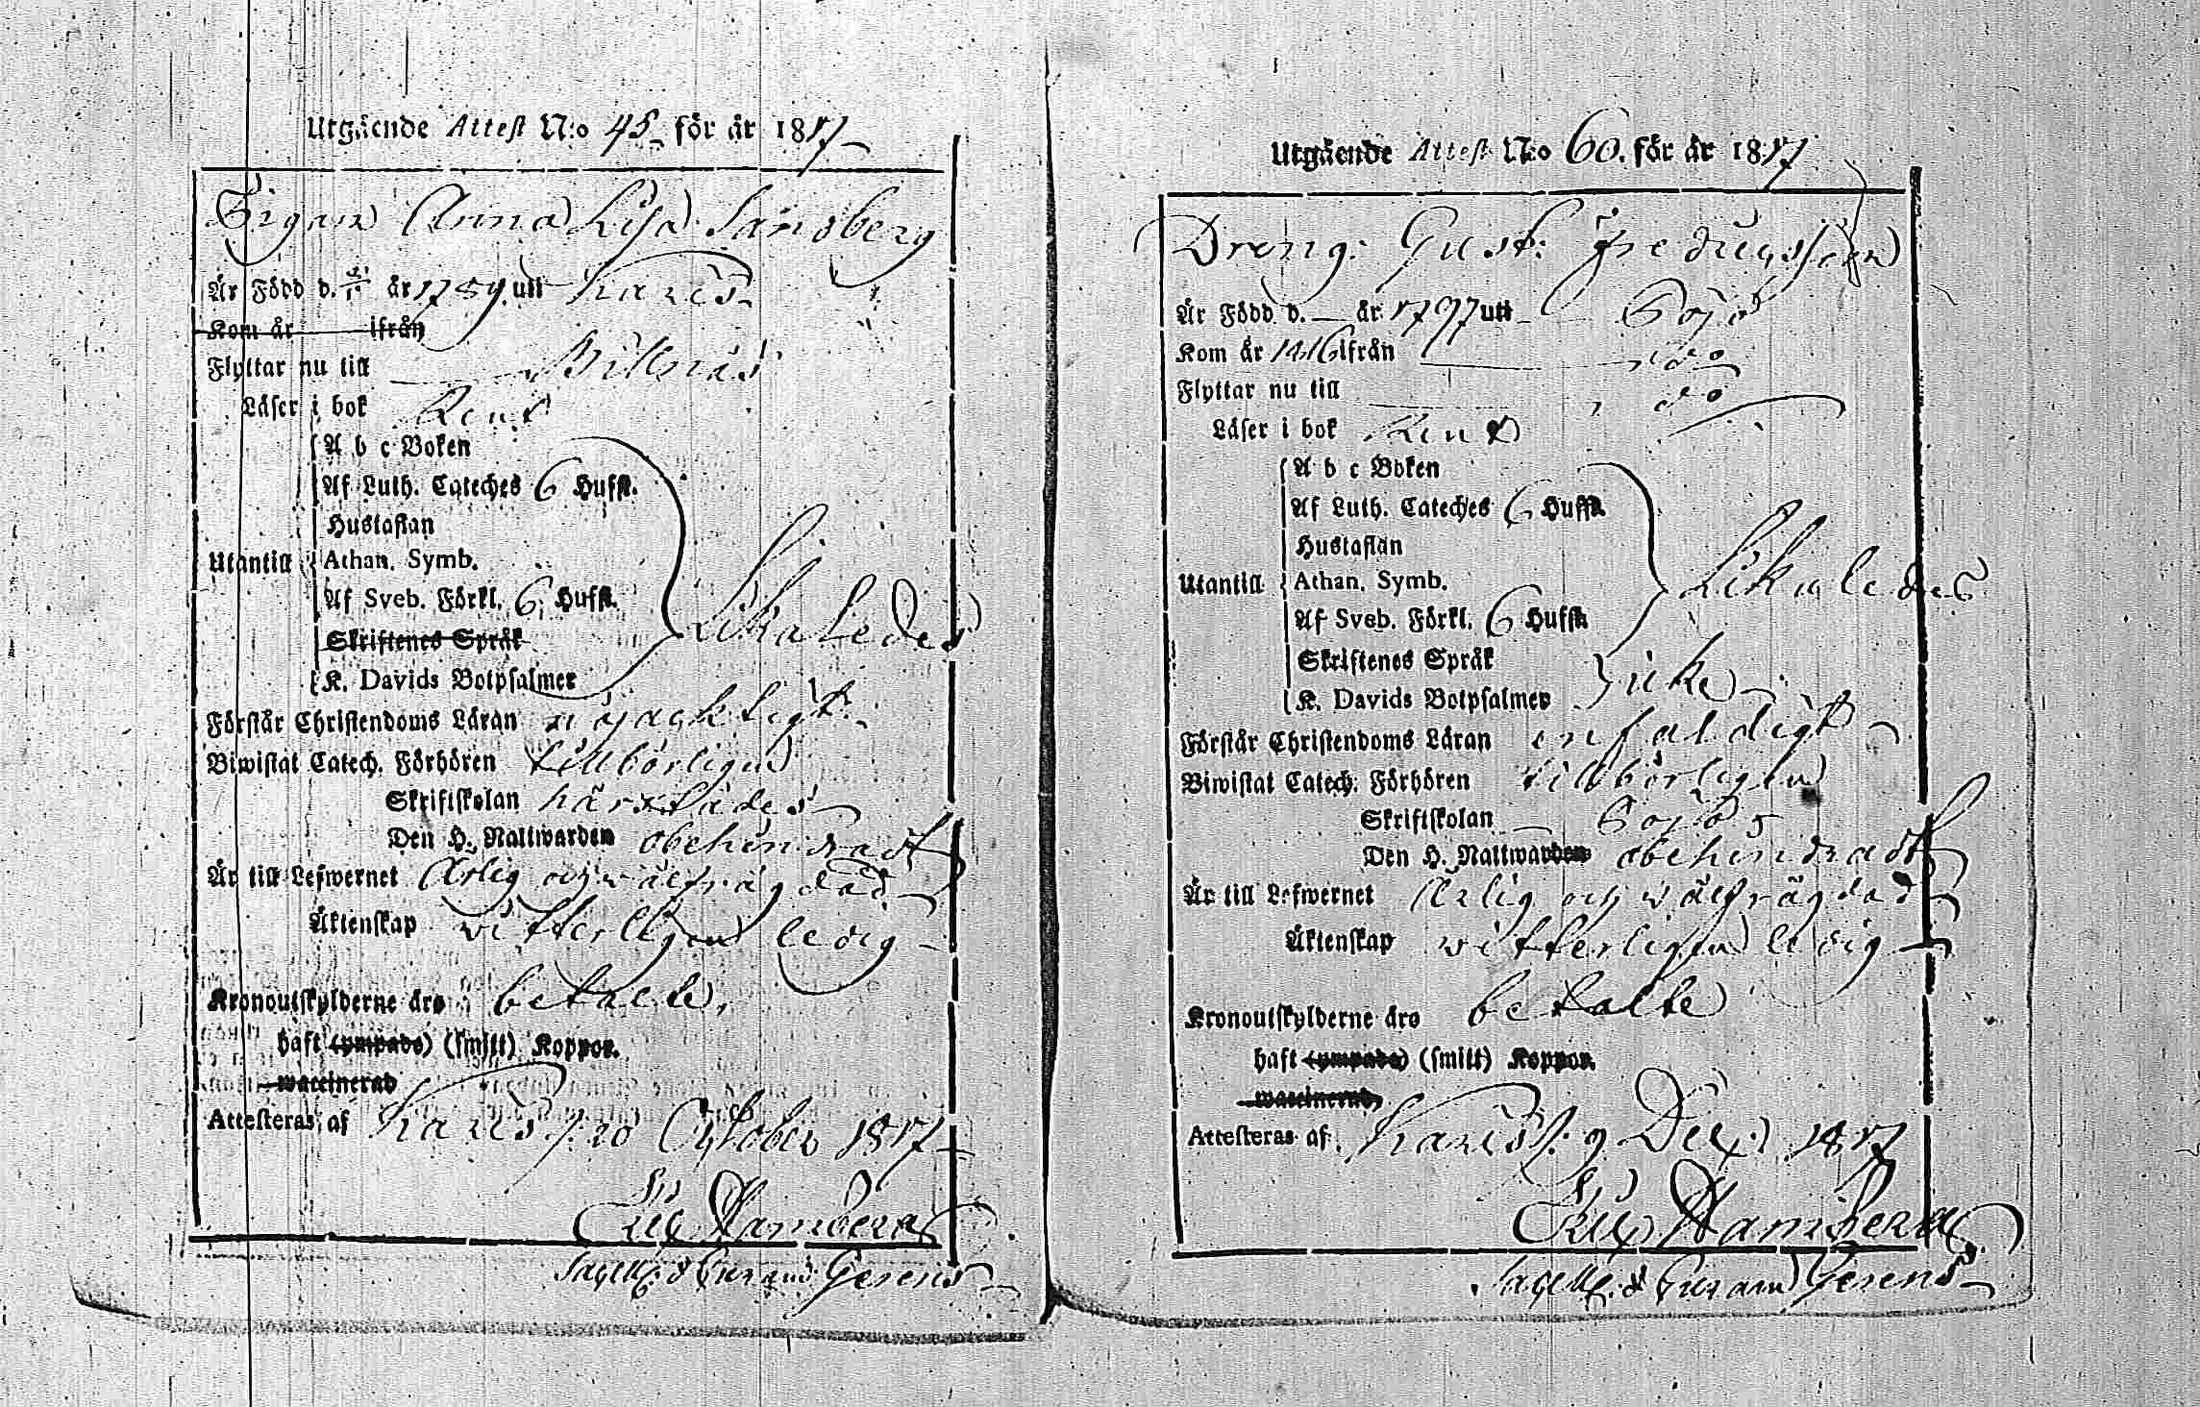 Utgående Attest N:o 45 för år 1817
Pigan Anna Lisa Sandberg
Är Född d. år 1789 utí Karis
Kom år ifrån
Flyttar nu till Billnäs
Läser i bok Rent
A b c Boken
Af Luth. Cateches 6 Hufst.
Hustaflan
Utantill Athan. Symb.
Af Sveb. Förkl. 6 Hufst. Likaledes
Skriftenes Språk
K. Davids Botpsalmer
Förstår Christendoms Läran nöjacktigt
Biwistat Catech. Förhören tillbörligen
Skriftskolan härstädes
Den H. Nattwarden obehindradt
Är till Lefwernet Ärlig och wälfrägdad
Äktenskap witterligen ledig
Kronoutskylderne äro betalte,
haft (ympade) (smitt) Koppor.
waccinerad
Attesteras af Karis p. 20 October 1817
Eric Hamberg
Sacell. & Curam Gerens
Utgående Attest N:o 60. för år 1817
Dreng. Gust. Fredricsson
Är Född d. — år 1797 utí Bojo
Kom år 1816 ifrån do
Flyttar nu till do
Läser i bok Rent
A b c Boken
Af Luth. Cateches 6 Hufst.
Hustaflan
Utantill Athan. Symb. Likaledes
Af Sveb. Förkl. 6 Hufst.
Skriftenes Språk
K. Davids Botpsalmer icke
Förstår Christendoms Läran enfaldigt
Biwistat Catech. Förhören tillbörligen
Skriftskolan Bojo
Den H. Nattwarden obehindradt
Är till Lefwernet Ärlig och wälfrägdad
Äktenskap witterligen ledig
Kronoutskylderne äro betalte
haft (ympade) (smitt) Koppor.
waccinerad
Attesteras af Karis p. 9 Dec. 1817
Eric Hamberg
Sacell. & Curam Gerens